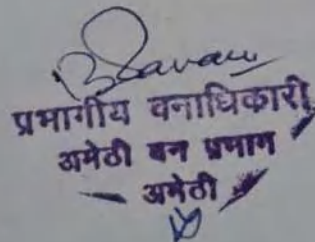 प्रभागीय वनाधिकारी
अमेठी वन प्रभाग
अमेठी